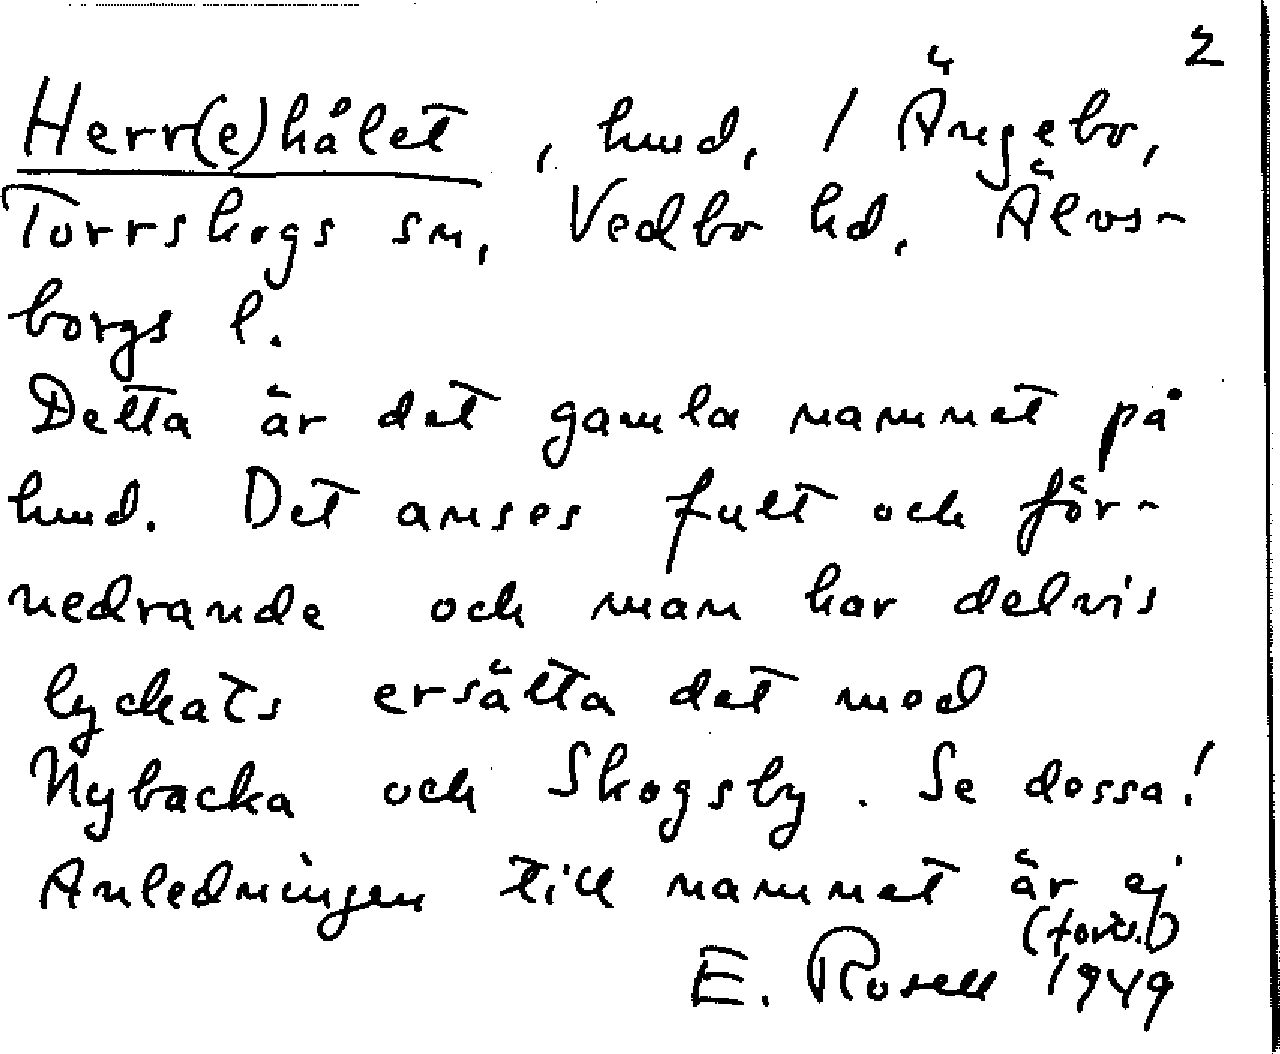 2
Herr(e)hålet, hmd, / Ängebo,
Torrskogs sn, Vedbo hd, Älvs-
borgs l.
Detta är det gamla namnet på
hmd. Det anses fult och för-
nedrande och man har delvis
lyckats ersätta det med
Nybacka och Skogsby. Se dessa!
Anledningen till namnet är ej
(forts.)
E. Rosell 1949